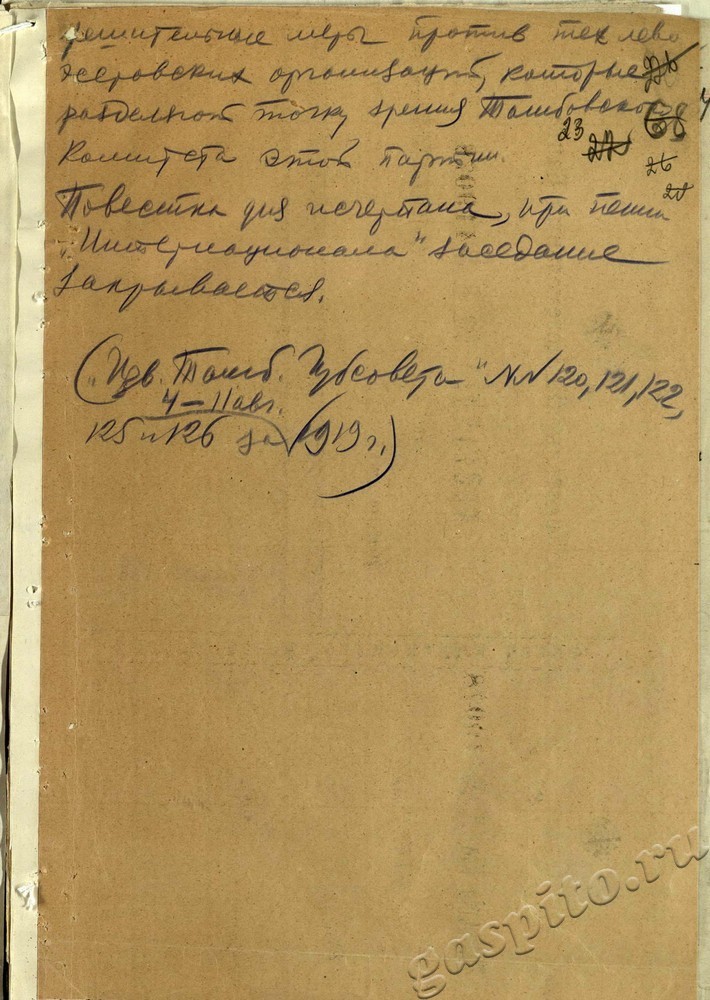 решительные меры против тех лево
эсеровских организаций, которые
разделяют точку зрения Тамбовского
Комитета этой партии.
23
26
Повестка дня исчерпана, при пении
„Интернационала" заседание
закрывается.
(„Изв. Тамб. Губсовета" №№ 120, 121, 122,
4–11 авг.
125 и 126 за 1919 г.)
gaspito.ru